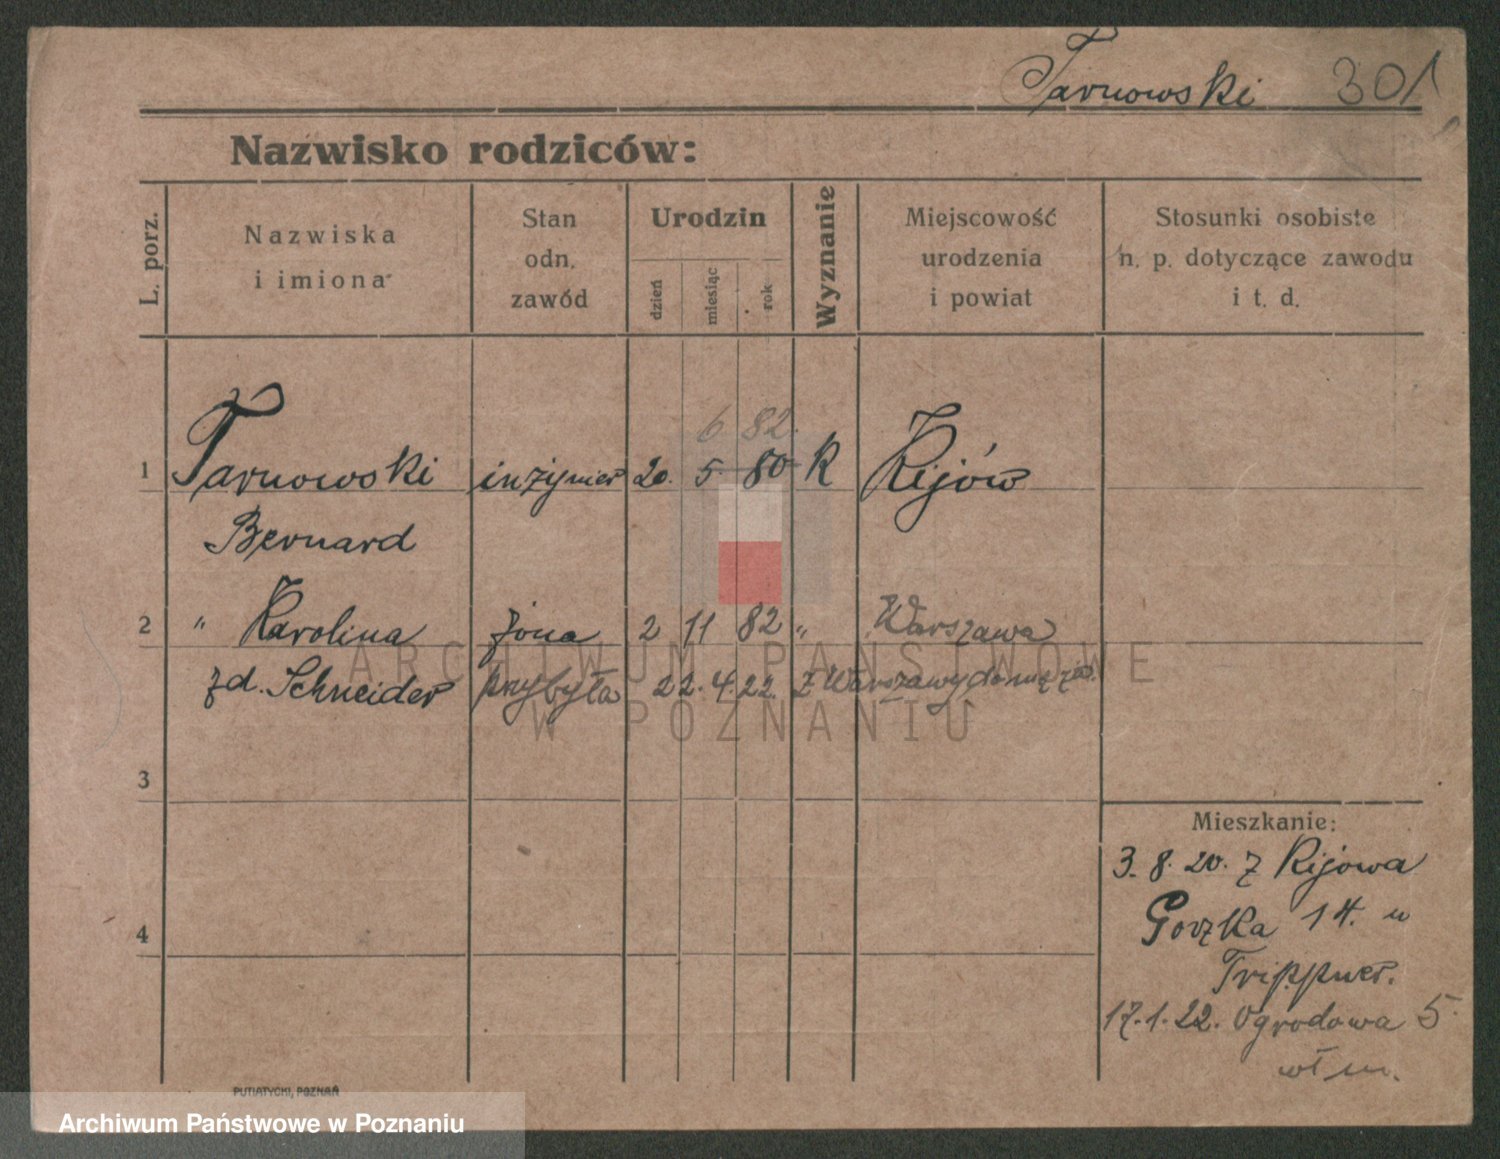 Tarnowski 301
Nazwisko rodziców:
L. porz.
Nazwiska
i imiona
Stan
odn.
zawód
Urodzin
dzień
miesiąc
rok
Wyznanie
Miejscowość
urodzenia
i powiat
Stosunki osobiste
n. p. dotyczące zawodu
i t. d.
6 82.
1 Tarnowski inżynier 20. 5. 80 R Kijów
Bernard
2 " Karolina żona 2 11 82 " Warszawa
zd. Schneider przybyła 22. 4. 22. z Warszawy do męża.
3
4
Mieszkanie:
3. 8. 20. z Kijowa
Gorzka 14. u
Trippner.
17. 1. 22. Ogrodowa 5.
wł m.
PUTIATYCKI, POZNAŃ
ARCHIWUM PAŃSTWOWE
W POZNANIU
Archiwum Państwowe w Poznaniu